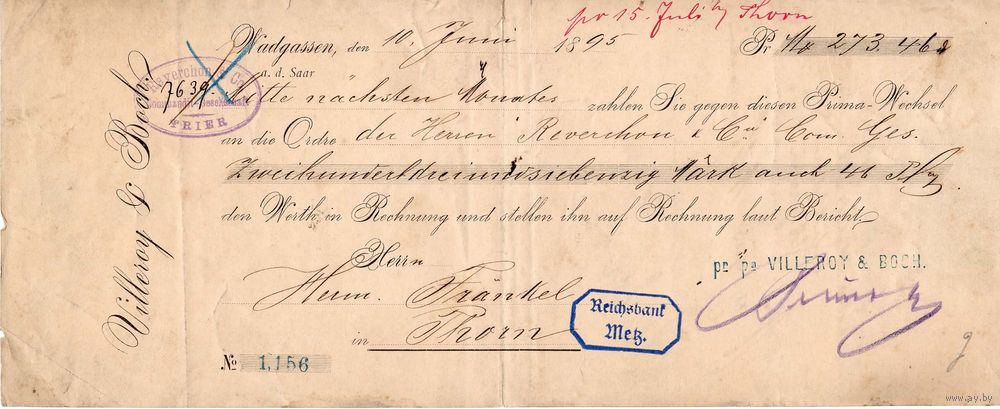 pr 15. Juli by Thorn
Wadgassen, den 10. Juni 1895 Pr. Mk 273.46
a. d. Saar
Reverchon & Co
Commandit-Gesellschaft
TRIER
7639
Mitte nächsten Monates zahlen Sie gegen diesen Prima-Wechsel
an die Ordre der Herren Reverchon & Cie Com. Ges.
Zweihundertdreiundsiebenzig Mark auch 46 Pfg
den Werth in Rechnung und stellen ihn auf Rechnung laut Bericht
Herrn
Herm. Fränkel
in Thorn
pr pa VILLEROY & BOCH.
Reichsbank
Metz.
No 1,156
Villeroy & Boch.
www.ay.by